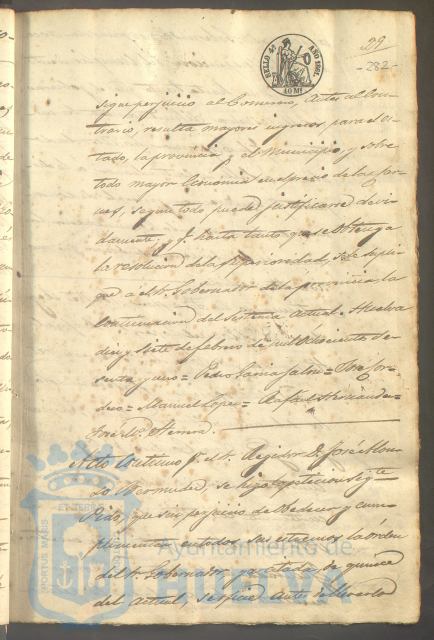 SELLO 4º AÑO 1861.
40 Ms
29
-282-
sigue perjuicio al Comercio, Antes al Con-
trario, resulta mayores ingresos, para el es-
tado, la provincia y el Municipio, y sobre
todo mayor Economia en el precio de las
segun todo puede justificarse devi-
damente, y q. hasta tanto que se obtenga
la resolucion de la Superioridad, se supli-
que a el S. Gobernador de la provincia la
continuacion del Sistema actual. Huelva
diez y siete de febrero de mil ochocientos se-
senta y uno = Pedro Garcia Jalon = José
= Manuel Lopez = Rafael Hernandez =
José Mª
Acto continuo pr. el S. Regidor D. José
Bermudez se hizo la peticion sigte
Pido, que sin perjuicio de obedecer y cum-
plimentar en todos sus estremos la orden
del S. Gobernador fecha de quince
del Actual, se oficie antes de llevarlo
Ayuntamiento de
HUELVA
PORTUS MARIS